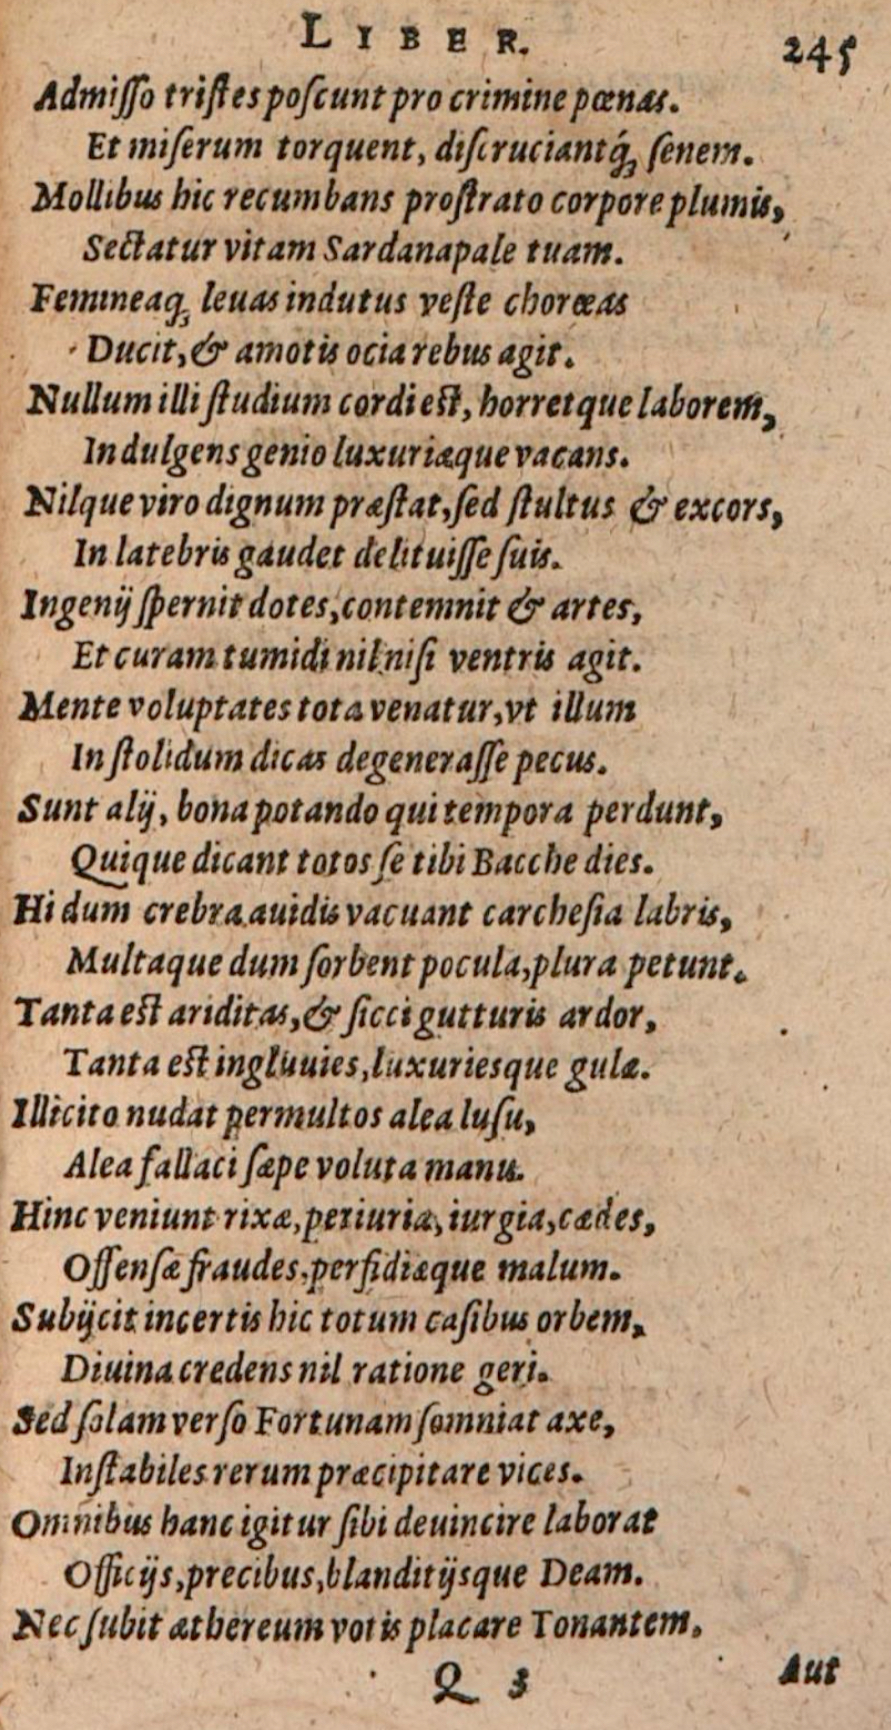 LIBER. 245
Admiſſo triſtes poſcunt pro crimine pœnas.
Et miſerum torquent, diſcruciantq́; ſenem.
Mollibus hic recumbans proſtrato corpore plumis,
Sectatur vitam Sardanapale tuam.
Femineaq; leuas indutus veſte chorœas
Ducit, & amotis ocia rebus agit.
Nullum illi ſtudium cordi est, horretque laborem,
Indulgens genio luxuriæque vacans.
Nilque viro dignum præſtat, ſed ſtultus & excors,
In latebris gaudet delituiſſe ſuis.
Ingenij ſpernit dotes, contemnit & artes,
Et curam tumidi nil niſi ventris agit.
Mente voluptates tota venatur, vt illum
In ſtolidum dicas degeneraſſe pecus.
Sunt alij, bona potando qui tempora perdunt,
Quique dicant totos ſe tibi Bacche dies.
Hi dum crebra auidis vacuant carcheſia labris,
Multaque dum ſorbent pocula, plura petunt.
Tanta est ariditas, & ſicci gutturis ardor,
Tanta est ingluuies, luxuriesque gulæ.
Illicito nudat permultos alea luſu,
Alea fallaci ſæpe voluta manu.
Hinc veniunt rixæ, periuria, iurgia, cædes,
Offenſæ fraudes, perfidiæque malum.
Subijcit incertis hic totum caſibus orbem,
Diuina credens nil ratione geri.
Sed ſolam verſo Fortunam ſomniat axe,
Inſtabiles rerum præcipitare vices.
Omnibus hanc igitur ſibi deuincire laborat
Officijs, precibus, blanditijsque Deam.
Nec ſubit æthereum votis placare Tonantem.
Q 3 Aut